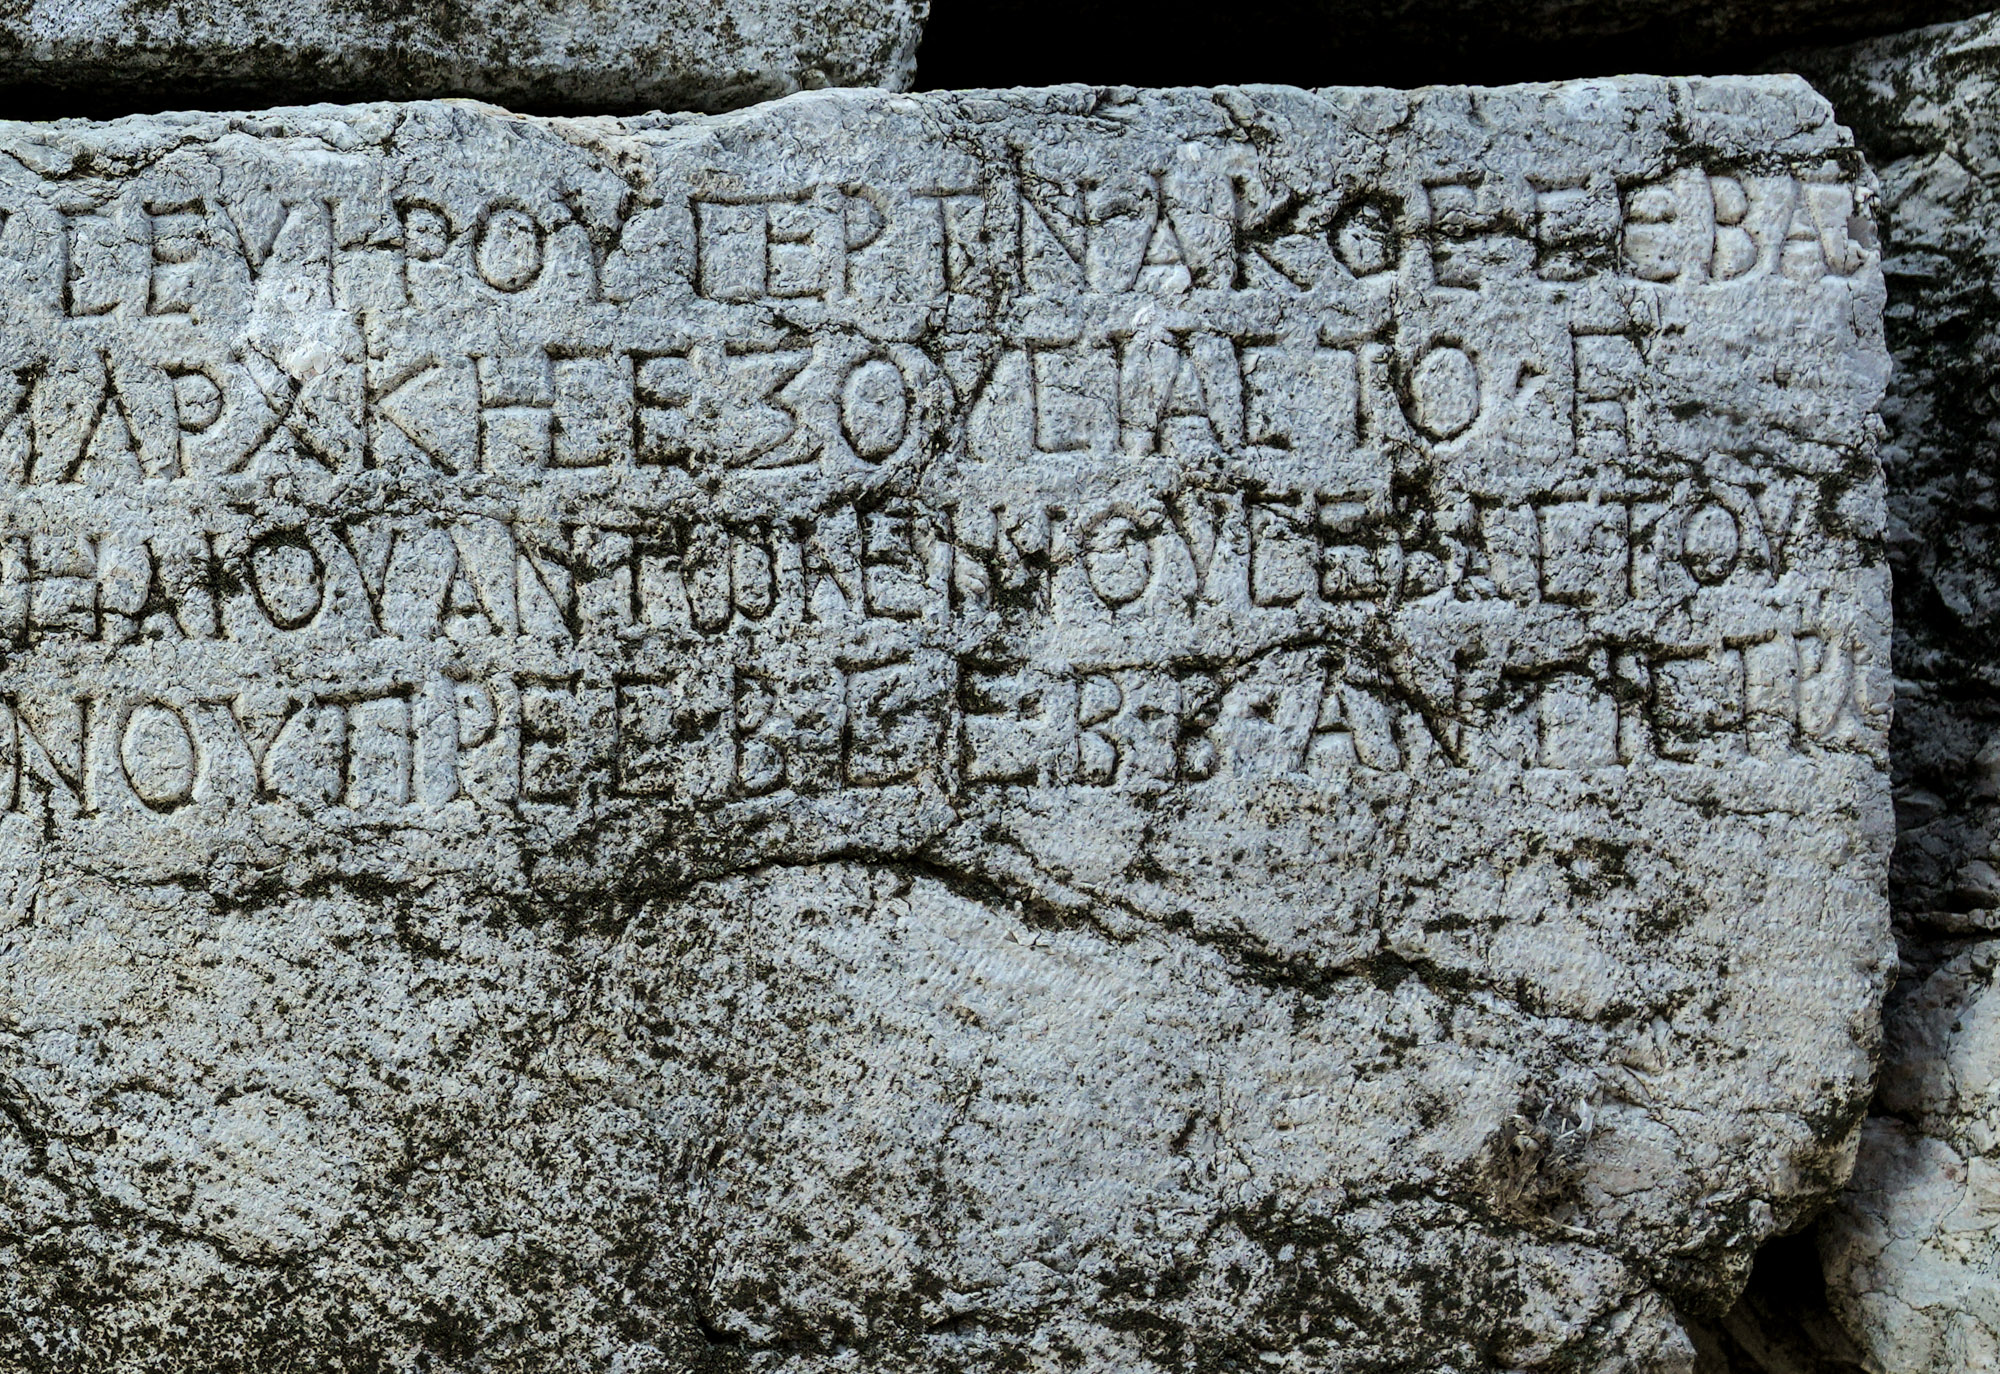 ΣΕΥΗΡΟΥΠΕΡΤΙΝΑΚΟΣΣΕΒΑΣ
ΜΑΡΧΙΚΗΣΕΞΟΥΣΙΑΣΤΟ·Ε
ΡΗΛΙΟΥΑΝΤΩΝΕΙΝΟΥΣΕΒΑΣΤΟΥ
ΝΟΥΠΡΕΣΒΣΕΒΒ·ΑΝΤΙΣΤΡΑ